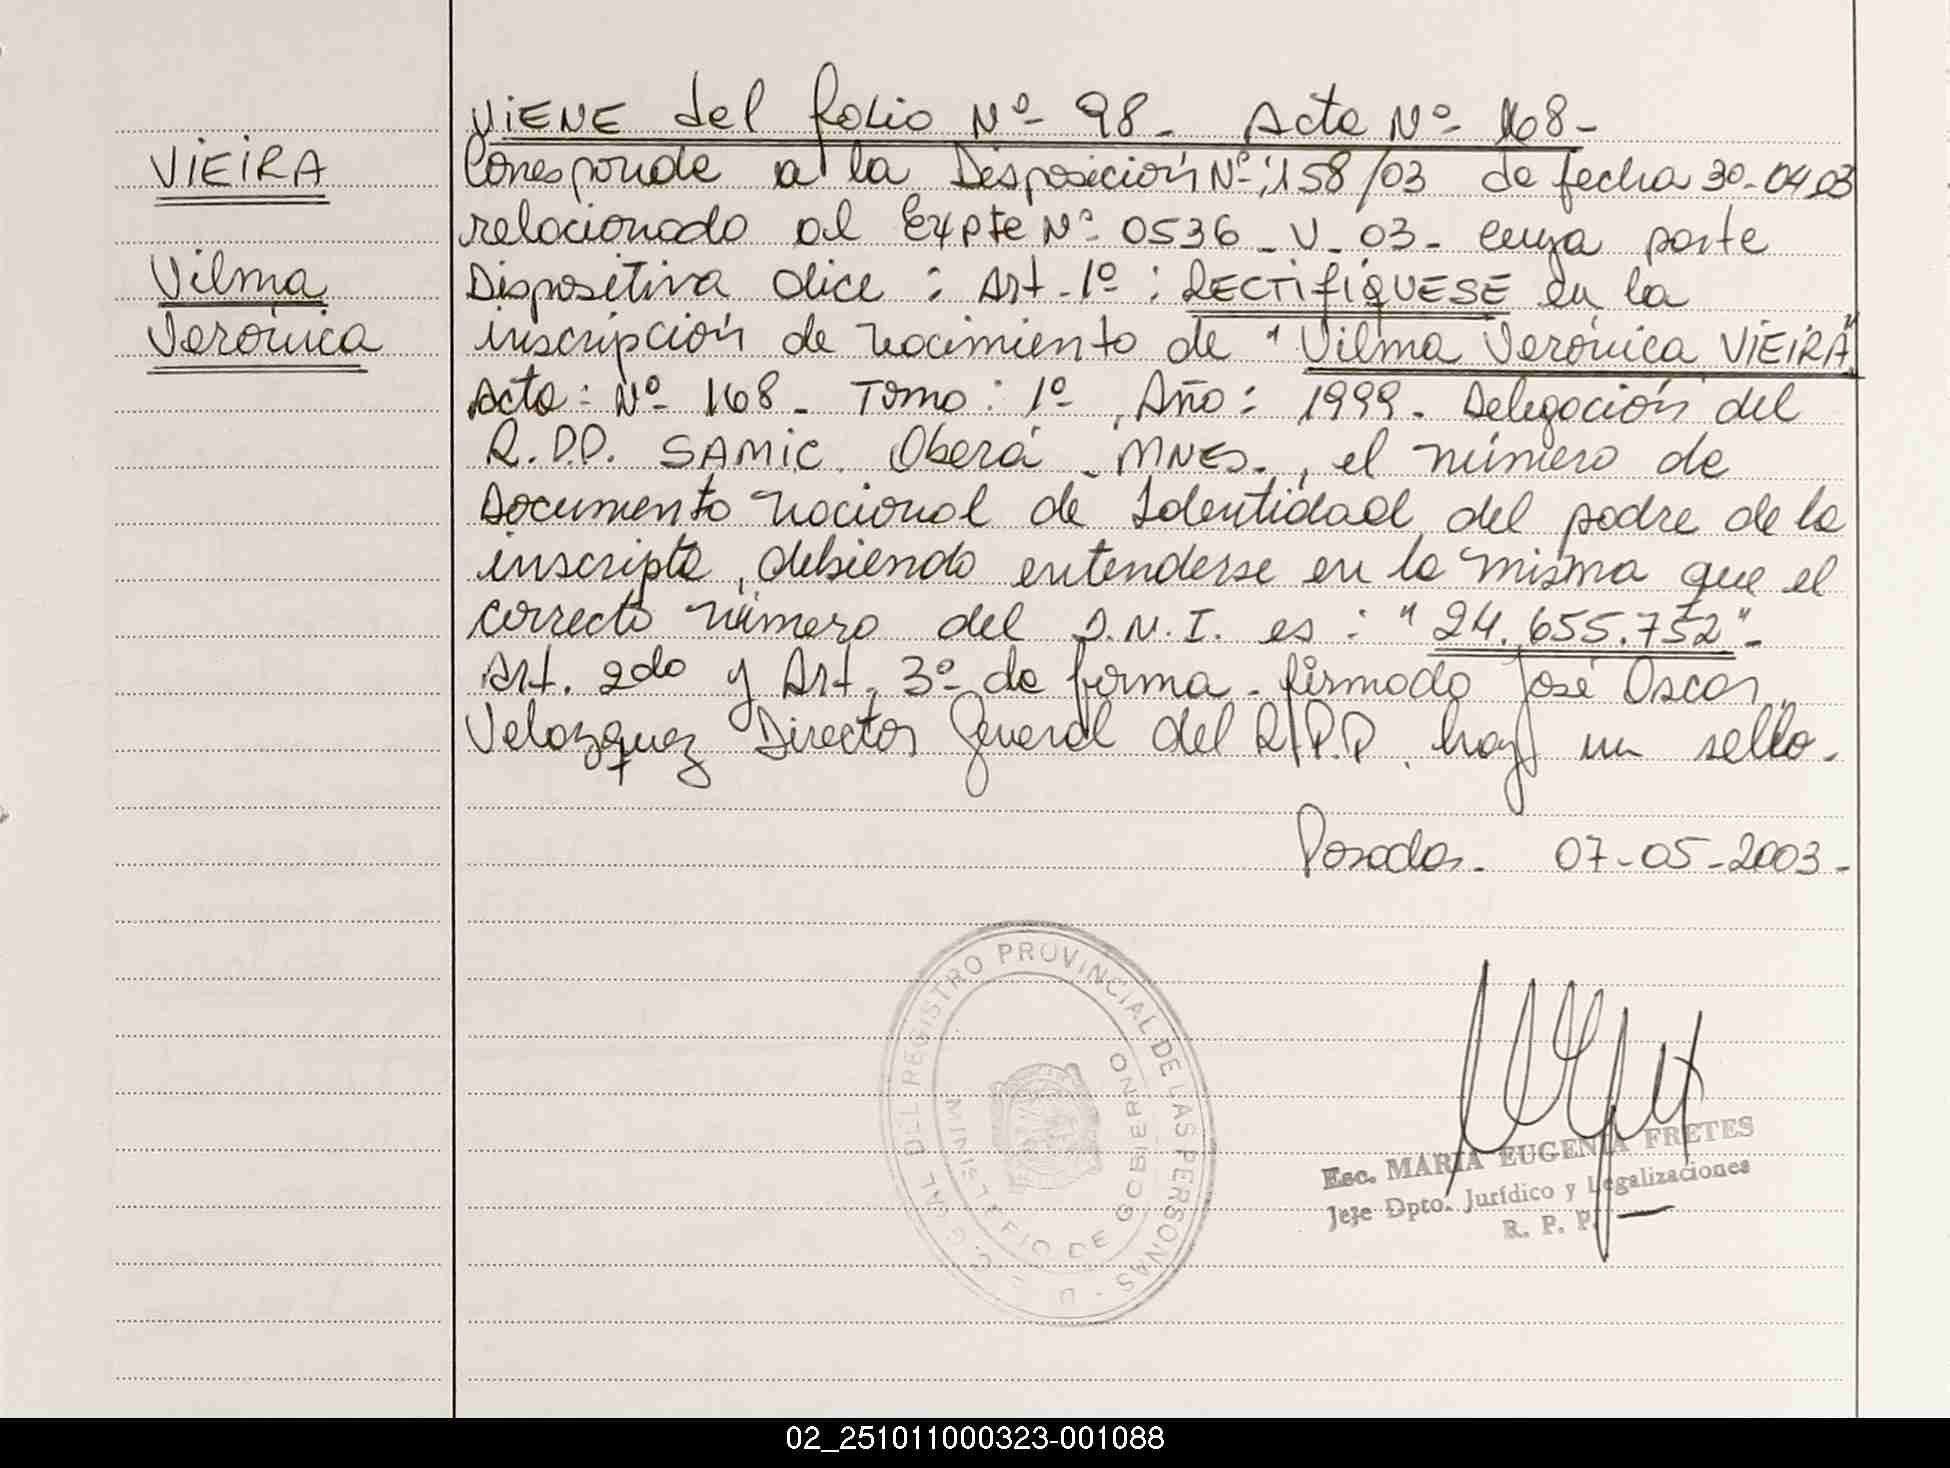 VIEIRA
Vilma
Verónica
VIENE del folio Nº 98 - Acta Nº 168 -
Corresponde a la Disposición Nº: 158/03 de fecha 30-04-03
relacionado al Expte Nº 0536 - V - 03 - cuya parte
Dispositiva dice : Art - 1º : RECTIFIQUESE en la
inscripción de nacimiento de "Vilma Verónica VIEIRA"
Acta: Nº 168 - Tomo: 1º , Año: 1999 - Delegación del
R.P.P. SAMIC. Oberá - MNES. , el número de
Documento Nacional de Identidad del padre de la
inscripta , debiendo entenderse en la misma que el
correcto número del D.N.I. es : "24.655.752" -
Art. 2do y Art. 3º de forma - firmado José Oscar
Velozquez Director General del R.P.P. hay un sello -
Posadas - 07-05-2003 -
D. GRAL. DEL REGISTRO PROVINCIAL DE LAS PERSONAS
MINISTERIO DE GOBIERNO
Esc. MARIA EUGENIA FRETES
Jefe Dpto. Jurídico y Legalizaciones
R. P. P.
02_251011000323-001088